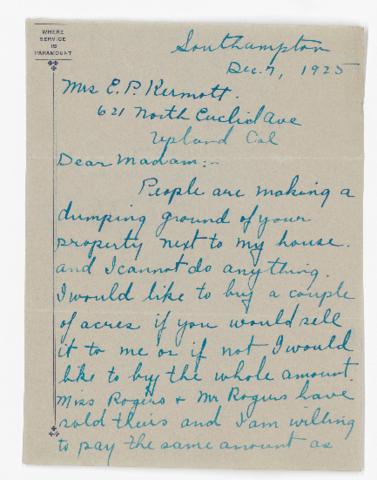 WHERE
SERVICE
IS
PARAMOUNT
Southampton
Dec. 7, 1925
Mrs E. P. Kermott.
621 North Euclid Ave
Upland Cal
Dear Madam:-
People are making a
dumping ground of your
property next to my house.
and I cannot do anything.
I would like to buy a couple
of acres if you would sell
it to me or if not I would
like to by the whole amount.
Miss Rogers + Mr Rogers have
sold theirs and I am willing
to pay the same amount as